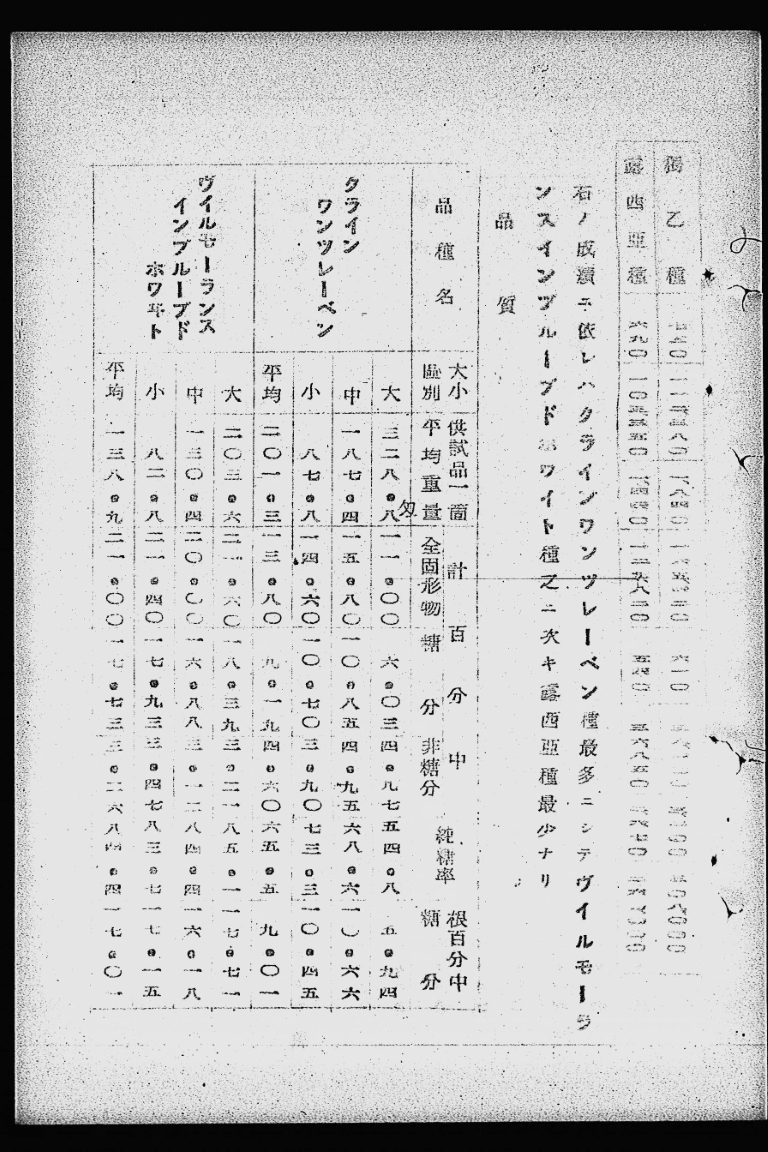 獨乙種
露西亞種
石ノ成績ニ依レハクラインワンツレーベン種最多ニシテヴイルモーラ
ンスインプルーブドホワイト種之ニ次キ露西亞種最少ナリ
品質
品種名 大小 供試品一箇 計百分中 純糖率 根百分中
區別 平均重量 全固形物 糖分 非糖分 糖分
匁
クライン
ワンツレーベン
大 三二八・八 一一・〇〇 六・〇三 四・九七 五四・八 五・九四
中 一八七・四 一五・八〇 一〇・八五 四・九五 六八・六 一〇・六六
小 八七・八 一四・六〇 一〇・七〇 三・九〇 七三・三 一〇・四五
平均 二〇一・三 一三・八〇 九・一九 四・六〇 六五・五 九・〇一
ヴイルモーランス
インプルーブド
ホワヰト
大 二〇三・六 二一・六〇 一八・三九 三・二一 八五・一 一七・七一
中 一三〇・四 二〇・〇〇 一六・八八 三・一二 八四・四 一六・一八
小 八二・八 二一・四〇 一七・九三 三・四七 八三・七 一七・一五
平均 一三八・九 二一・〇〇 一七・七三 三・二六 八四・四 一七・〇一